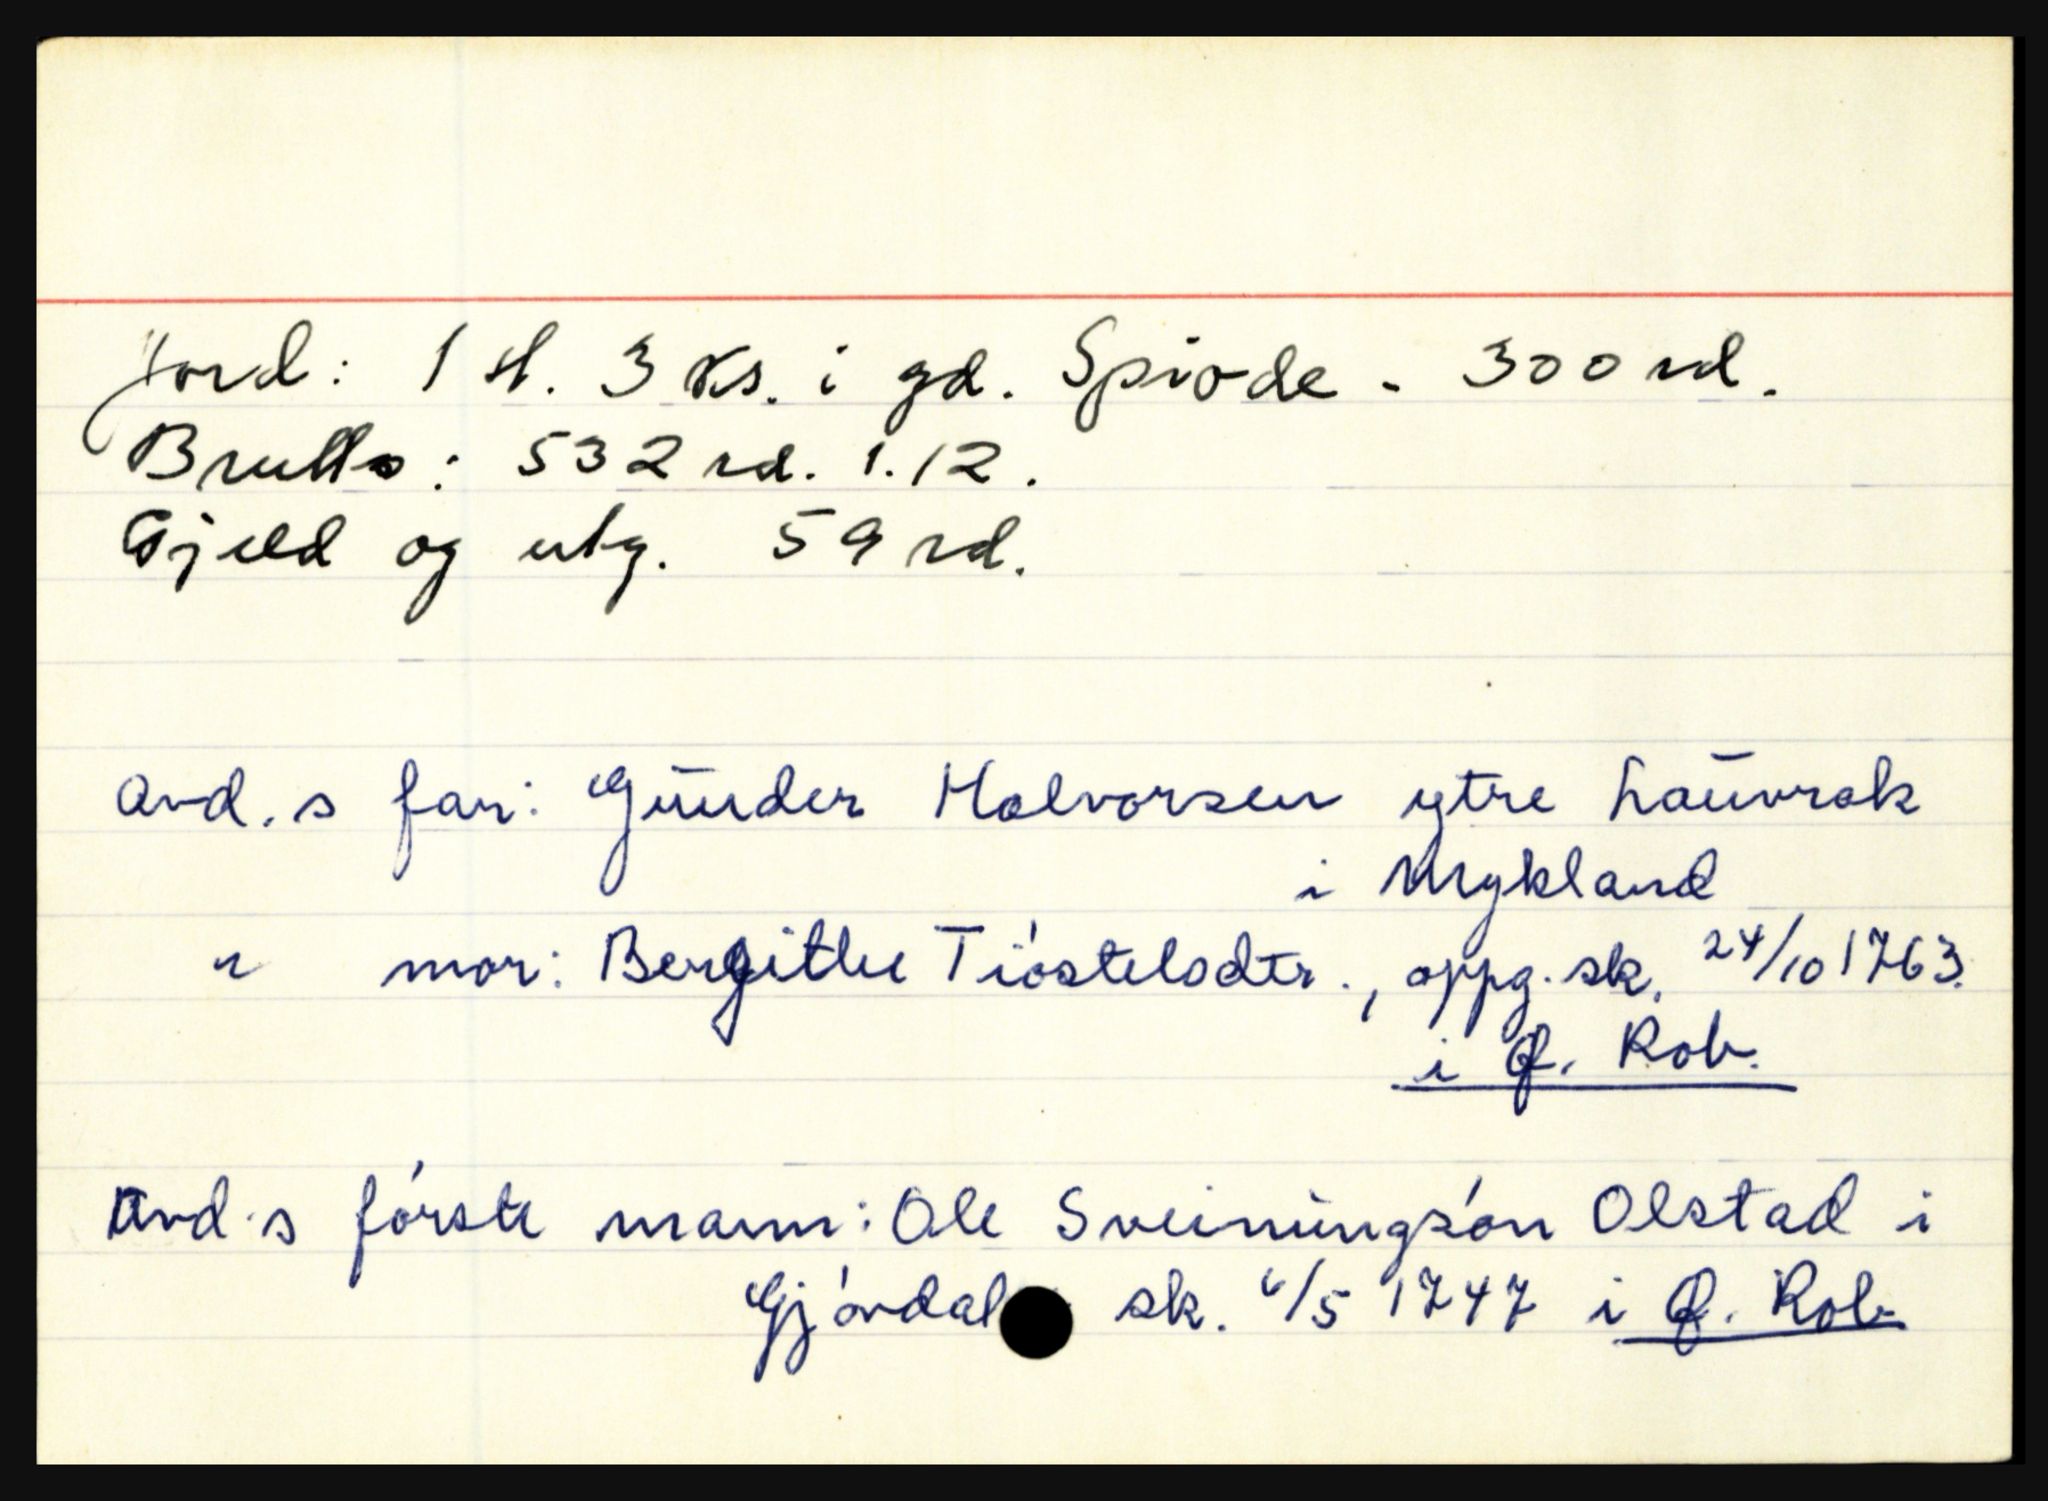 Jord: 1 st. 3 ks. i gd. Spiode - 300 rd.
Brutto: 532 rd. 1.12.
Gjeld og utg. 59 rd.
Avd.s far: Gunder Halvorsen ytre Lauvrak
i Mykland
" mor: Bergithe Tióstelsdtr., oppg. sk. 24/10 1763.
i Ø. Rob.
Avd.s fórste mann: Ole Sveinungsón Olstad i
Gjóvdal sk. 6/5 1747 i Ø. Rob.